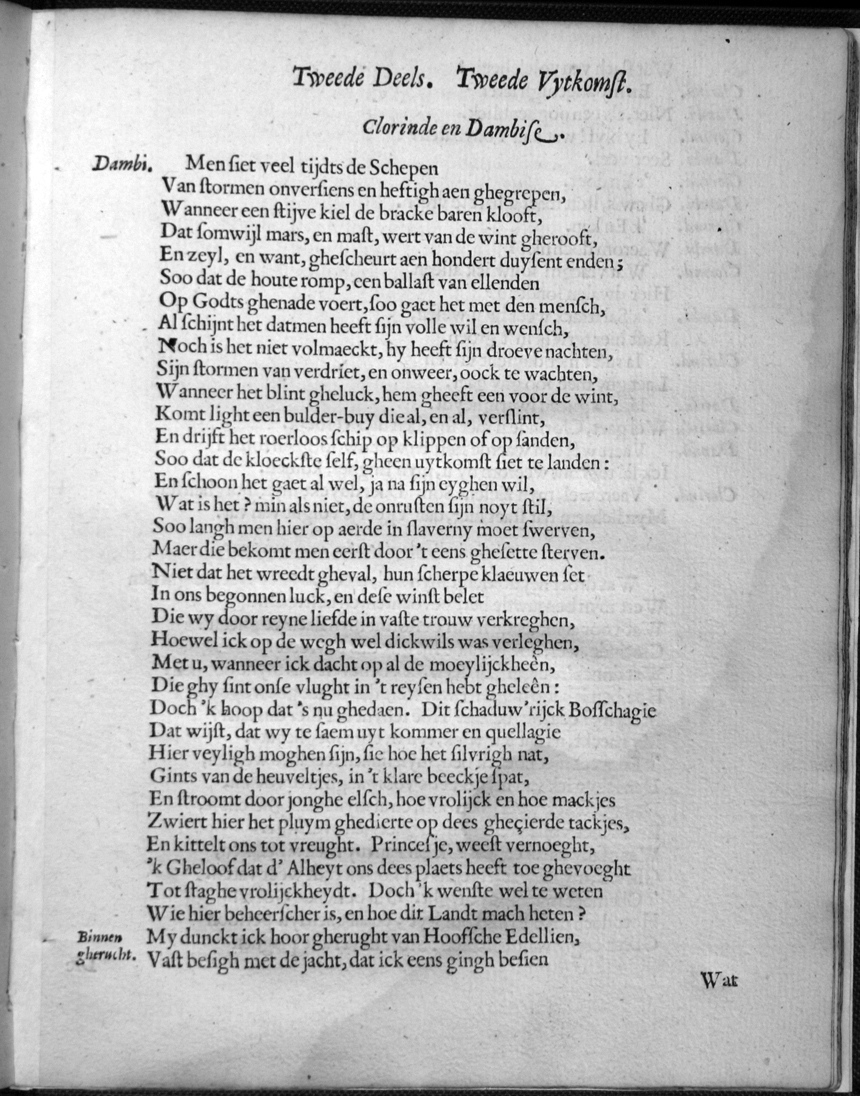 Tweede Deels. Tweede Vytkomſt.
Clorinde en Dambiſe.
Dambi. Men ſiet veel tijdts de Schepen
Van ſtormen onverſiens en heftigh aen ghegrepen,
Wanneer een ſtijve kiel de bracke baren klooft,
Dat ſomwijl mars, en maſt, wert van de wint gherooft,
En zeyl, en want, gheſcheurt aen hondert duyſent enden;
Soo dat de houte romp, een ballaſt van ellenden
Op Godts ghenade voert, ſoo gaet het met den menſch,
Al ſchijnt het datmen heeft ſijn volle wil en wenſch,
Noch is het niet volmaeckt, hy heeft ſijn droeve nachten,
Sijn ſtormen van verdriet, en onweer, oock te wachten,
Wanneer het blint gheluck, hem gheeft een voor de wint,
Komt light een bulder-buy die al, en al, verſlint,
En drijft het roerloos ſchip op klippen of op ſanden,
Soo dat de kloeckſte ſelf, gheen uytkomſt ſiet te landen:
En ſchoon het gaet al wel, ja na ſijn eyghen wil,
Wat is het? min als niet, de onruſten ſijn noyt ſtil,
Soo langh men hier op aerde in ſlaverny moet ſwerven,
Maer die bekomt men eerſt door 't eens gheſette ſterven.
Niet dat het wreedt gheval, hun ſcherpe klaeuwen ſet
In ons begonnen luck, en deſe winſt belet
Die wy door reyne liefde in vaſte trouw verkreghen,
Hoewel ick op de wegh wel dickwils was verleghen,
Met u, wanneer ick dacht op al de moeylijckheên,
Die ghy ſint onſe vlught in 't reyſen hebt gheleên:
Doch 'k hoop dat 's nu ghedaen. Dit ſchaduw'rijck Boſſchagie
Dat wijſt, dat wy te ſaem uyt kommer en quellagie
Hier veyligh moghen ſijn, ſie hoe het ſilvrigh nat,
Gints van de heuveltjes, in 't klare beeckje ſpat,
En ſtroomt door jonghe elſch, hoe vrolijck en hoe mackjes
Zwiert hier het pluym ghedierte op dees gheçierde tackjes,
En kittelt ons tot vreught. Princeſje, weeſt vernoeght,
'k Gheloof dat d' Alheyt ons dees plaets heeft toe ghevoeght
Tot ſtaghe vrolijckheydt. Doch 'k wenſte wel te weten
Wie hier beheerſcher is, en hoe dit Landt mach heten?
Binnen My dunckt ick hoor gherught van Hooſſche Edellien,
gherucht. Vaſt beſigh met de jacht, dat ick eens gingh beſien
Wat